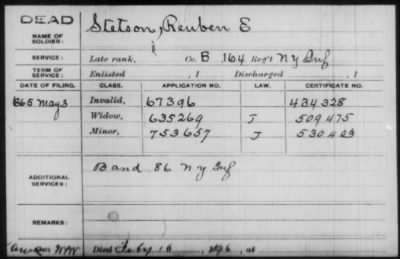 DEAD
NAME OF SOLDIER: Stetson, Reuben E
SERVICE: Late rank, Co. B 164 Reg't N Y Inf
TERM OF SERVICE: Enlisted , 1 Discharged , 1
DATE OF FILING. CLASS. APPLICATION NO. LAW. CERTIFICATE NO.
1865 May 3 Invalid, 67396 434328
Widow, 635269 J 509475
Minor, 753657 J 530403
ADDITIONAL SERVICES: Band 86 N Y Inf
REMARKS:
Died Feby 16